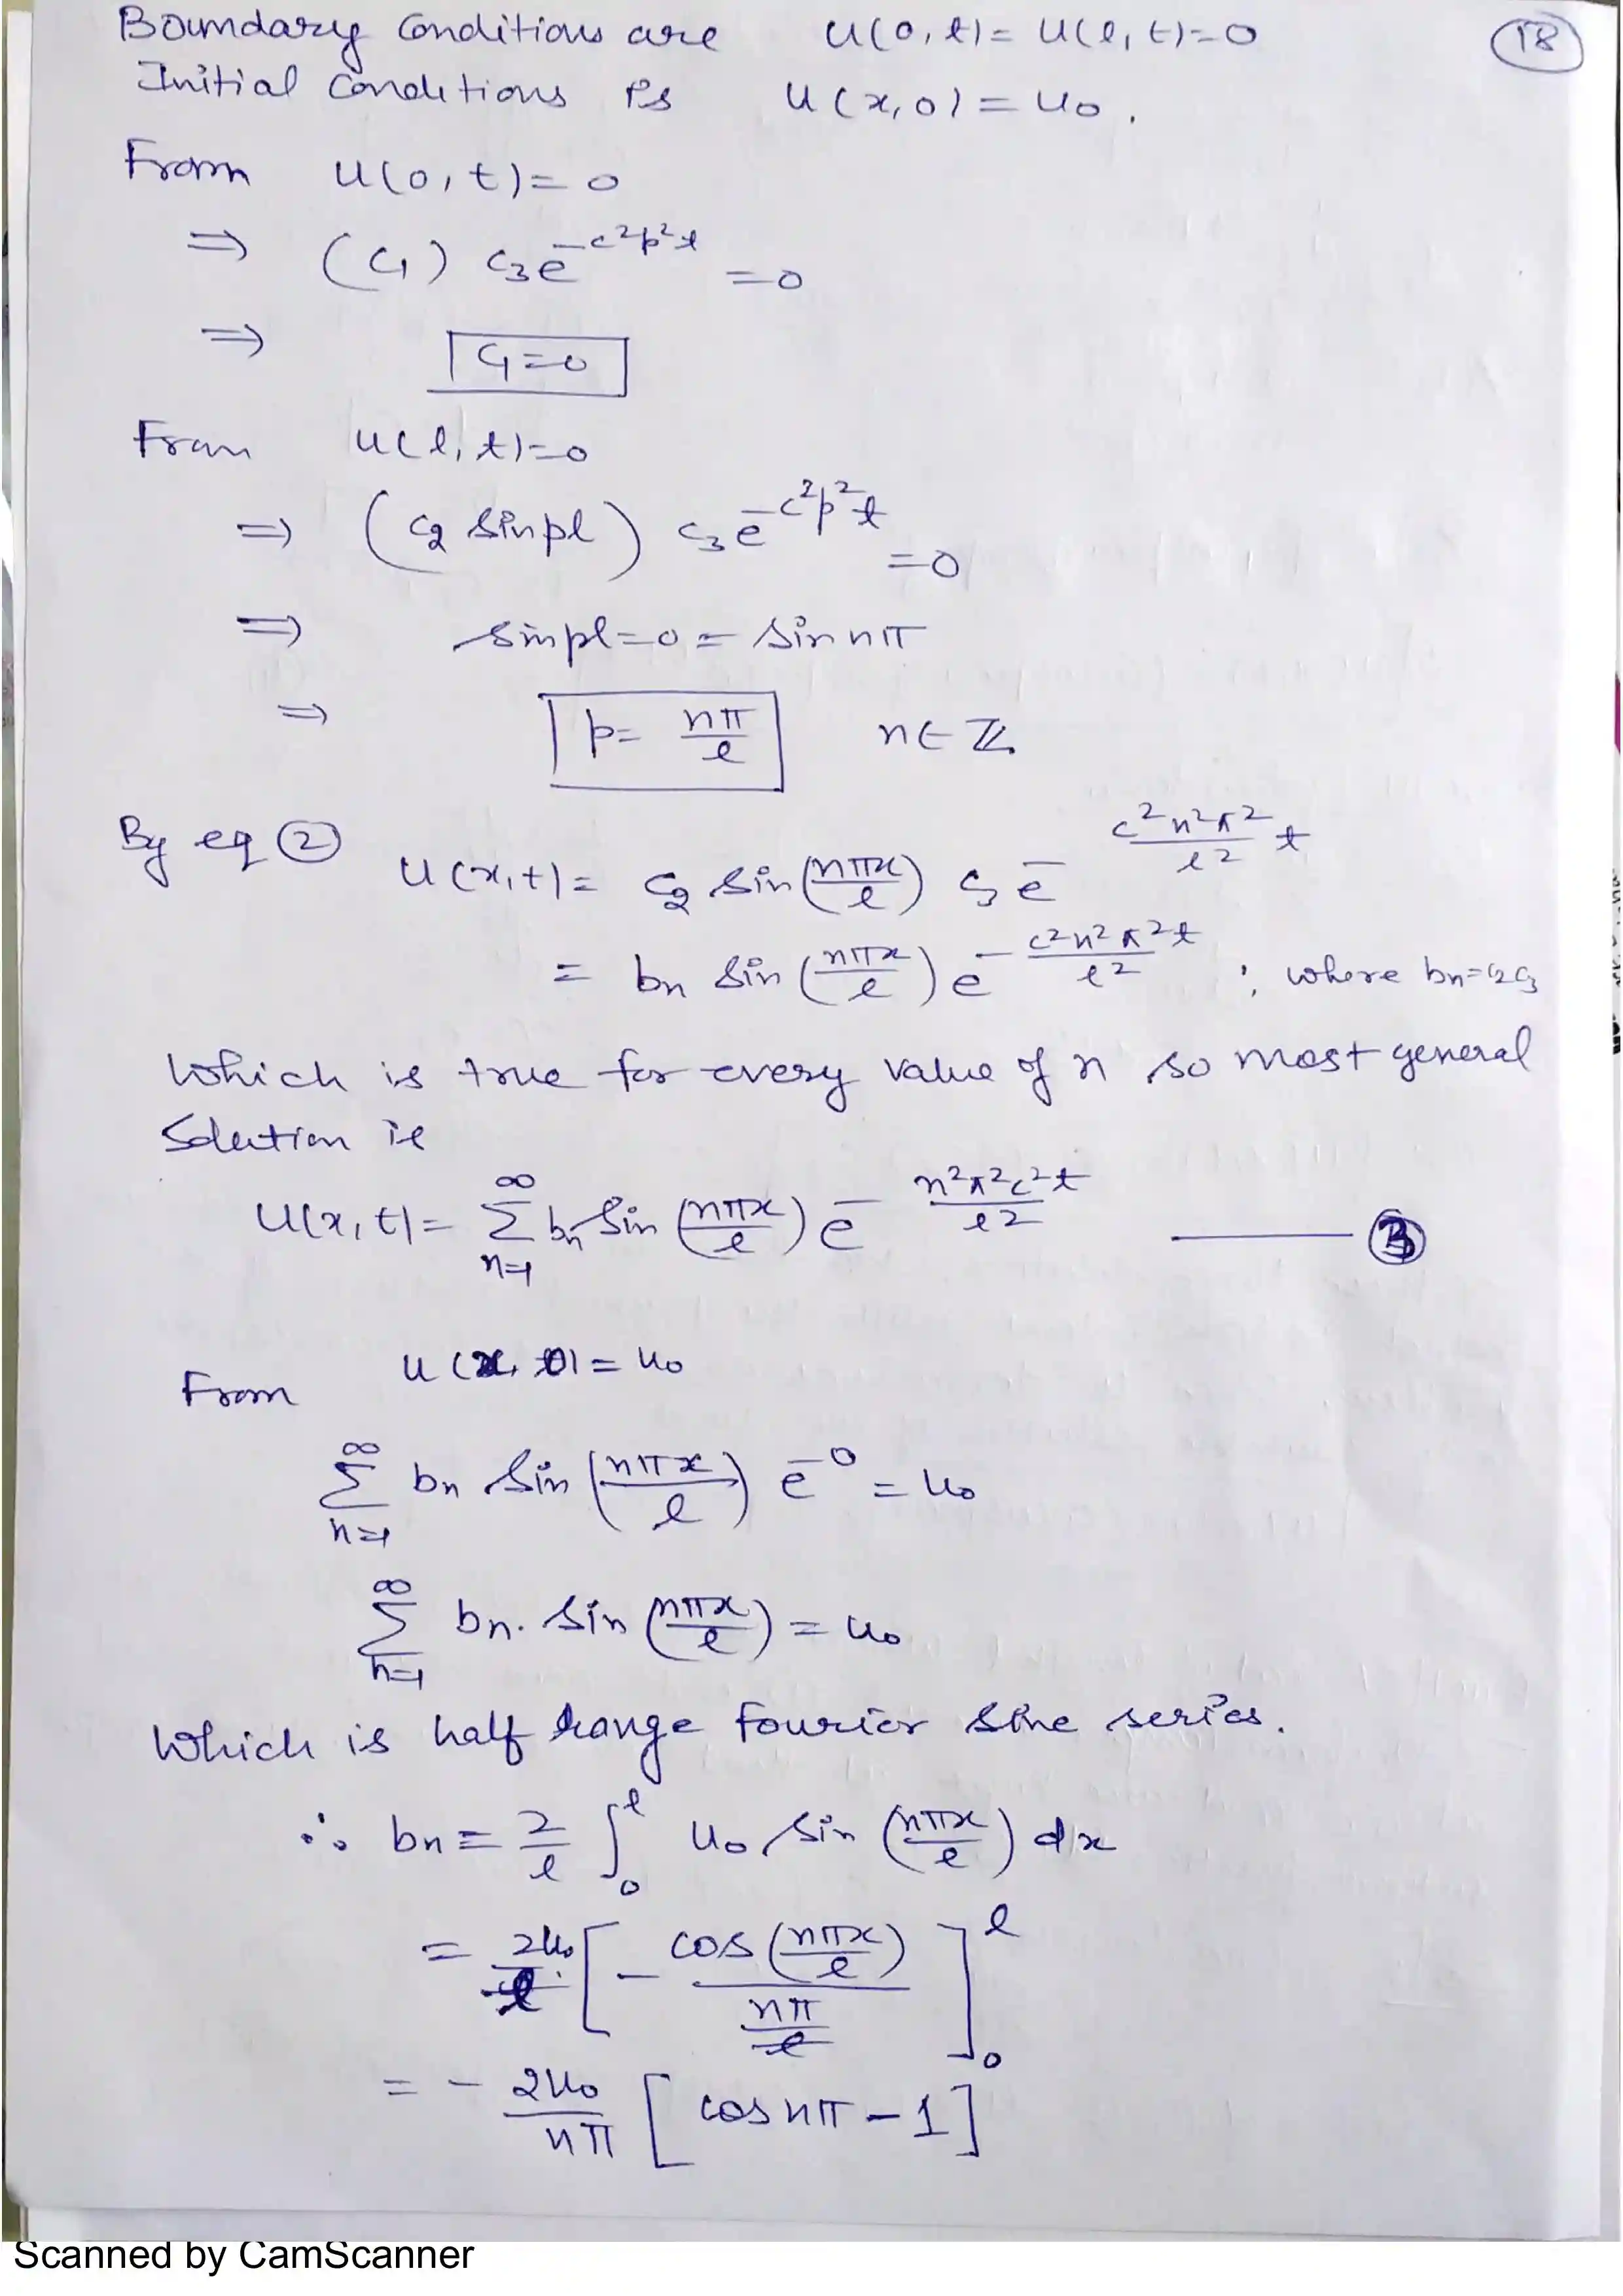 Boundary Conditions are u(0,t)= u(l,t)=0 (18)
Initial Conditions is u(x,0)=u₀.
From u(0,t)=0
⇒ (c₁) c₃e^{-c²p²t} =0
⇒ c₁=0
From u(l,t)=0
⇒ (c₂ sinpl) c₃e^{-c²p²t} =0
⇒ sinpl=0= sin nπ
⇒ p= nπ/l n∈ℤ
By eq ② u(x,t)= c₂ sin(nπx/l) c₃ e^{-c²n²π²/l² t}
= bn sin(nπx/l) e^{-c²n²π²t/l²} ; where bn=c₂c₃
Which is true for every value of n so most general
Solution is
u(x,t)= ∑_{n=1}^{∞} bn sin(nπx/l) e^{-n²π²c²t/l²} —— ③
From u(x,0)=u₀
∑_{n=1}^{∞} bn sin(nπx/l) e^{-0} =u₀
∑_{n=1}^{∞} bn. sin(nπx/l) = u₀
Which is half range fourier sine series.
∴ bn= 2/l ∫₀^l u₀ sin(nπx/l) dx
= 2u₀/l [- cos(nπx/l) / (nπ/l)]₀^l
= - 2u₀/nπ [cos nπ -1]
Scanned by CamScanner